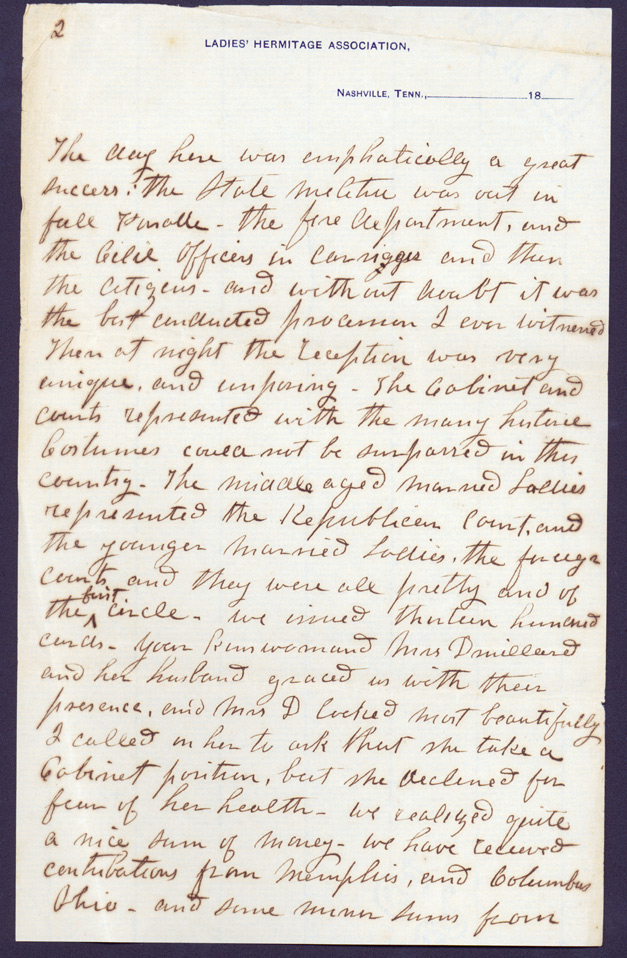 2
LADIES' HERMITAGE ASSOCIATION,
NASHVILLE, TENN., 18
The day here was emphatically a great
success: the State militia was out in
full Parade - the fire department, and
the Civil Officers in carriages and then
the Citizens - and without doubt it was
the best conducted procession I ever witnessed
Then at night the reception was very
unique, and imposing - The Cabinet and
courts represented with the many historic
Costumes could not be surpassed in this
country - The middle aged married Ladies
represented the Republican Court, and
the younger married Ladies, the foreign
courts, and they were all pretty and of
the first circle - we issued thirteen hundred
cards - your kinswoman Mrs
and her husband graced us with their
presence, and Mrs D looked most beautifully
I called on her to ask that she take a
Cabinet position, but she declined for
fear of her health - we realized quite
a nice sum of money - we have received
contributions from Memphis, and Columbus
Ohio - and some minor sums from